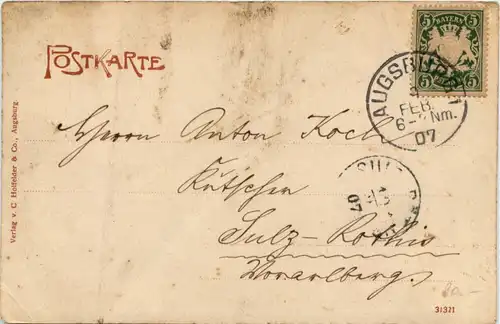 POSTKARTE
5 BAYERN 5
AUGSBURG
FEB.
6-7 Nm.
07
Herrn Anton Koch
Kutscher
Sulz-Röthis
Vorarlberg.
07
Verlag v. C Hoffelder & Co., Augsburg.
31321